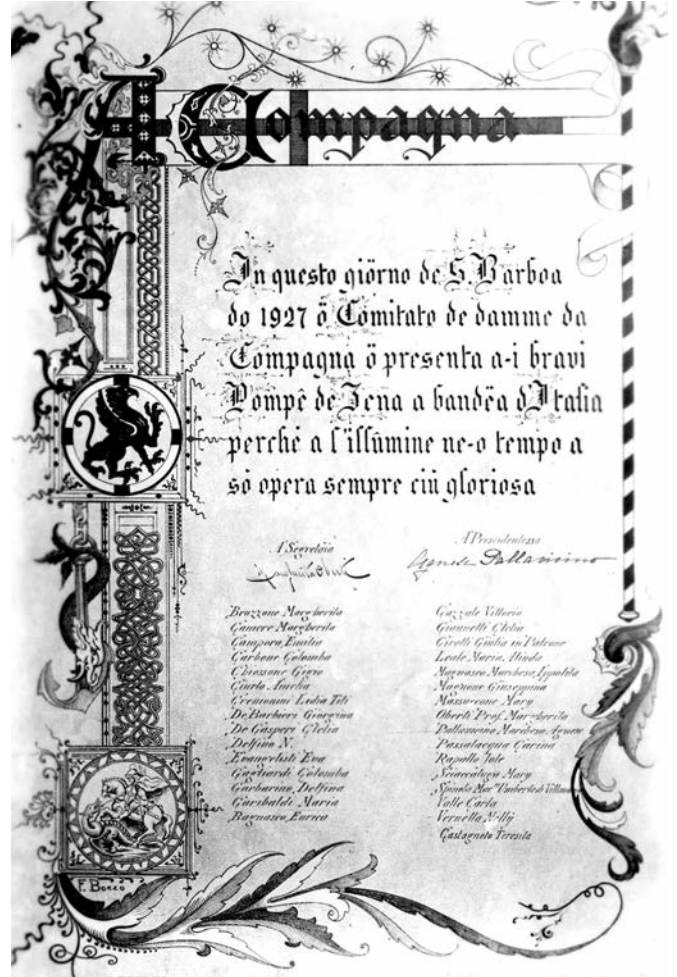 A Compagna
In questo giörno de S. Barboa
do 1927 ö Comitato de damme da
Compagna ö presenta a-i bravi
Pompê de Zena a bandëa d'Italia
perchè a l'illumine ne-o tempo a
sò opera sempre ciù gloriosa
A Segretäia
A Presidentessa
Agnese Pallavicino
Bruzzone Margherita
Camere Margherita
Campora Emilia
Carbone Colomba
Chiossone Gigia
Ciurlo Amelia
Cremonini Lidia Titi
De Barbieri Giorgina
De Gasperi Clelia
Delfino N.
Evangelisti Eva
Gagliardi Colomba
Garbarino Delfina
Garibaldi Maria
Bagnasco Enrica
Gazzale Vittoria
Giannelli Clelia
Girelli Giulia in Patrone
Leale Maria Alinda
Magnasco Marchesa Ippolita
Magnone Giuseppina
Massoccone Mary
Oberti Prof. Margherita
Pallavicino Marchesa Agnese
Passalacqua Carina
Rapallo Jole
Sciaccaluga Mary
Spinola Mar.sa Umberto di
Valle Carla
Vernetta Nelly
Castagneto Teresita
F. Bozzo